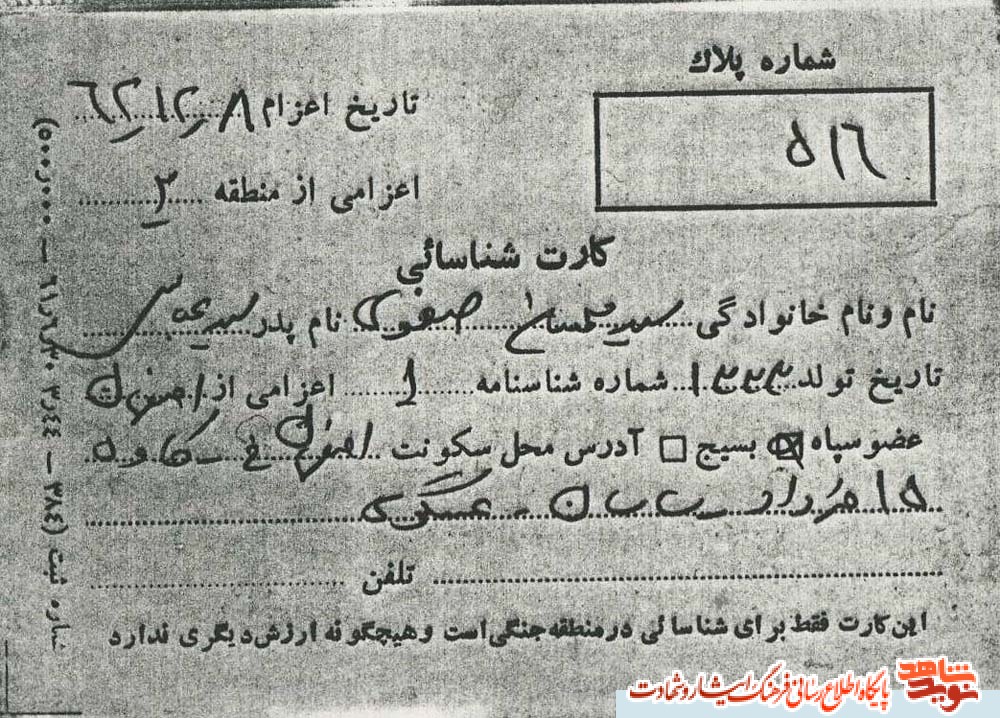 شماره پلاك
۵۱۶
تاریخ اعزام ۶۲,۱۲,۸
اعزامی از منطقه ۲
کارت شناسائی
نام و نام خانوادگی سید صفوی نام پدر سید
تاریخ تولد ۱۳۳۳ شماره شناسنامه ۱ اعزامی از اصفهان
عضو سپاه ☒ بسیج □ آدرس محل سکونت اصفهان خ کاوه
۱۵ خرداد عسگری
تلفن
این کارت فقط برای شناسائی در منطقه جنگی است و هیچگونه ارزش دیگری ندارد
شماره ثبت (۳۸۴ – ۳٫۴۴
نوید شاهد
پایگاه اطلاع رسانی فرهنگ ایثار و شهادت